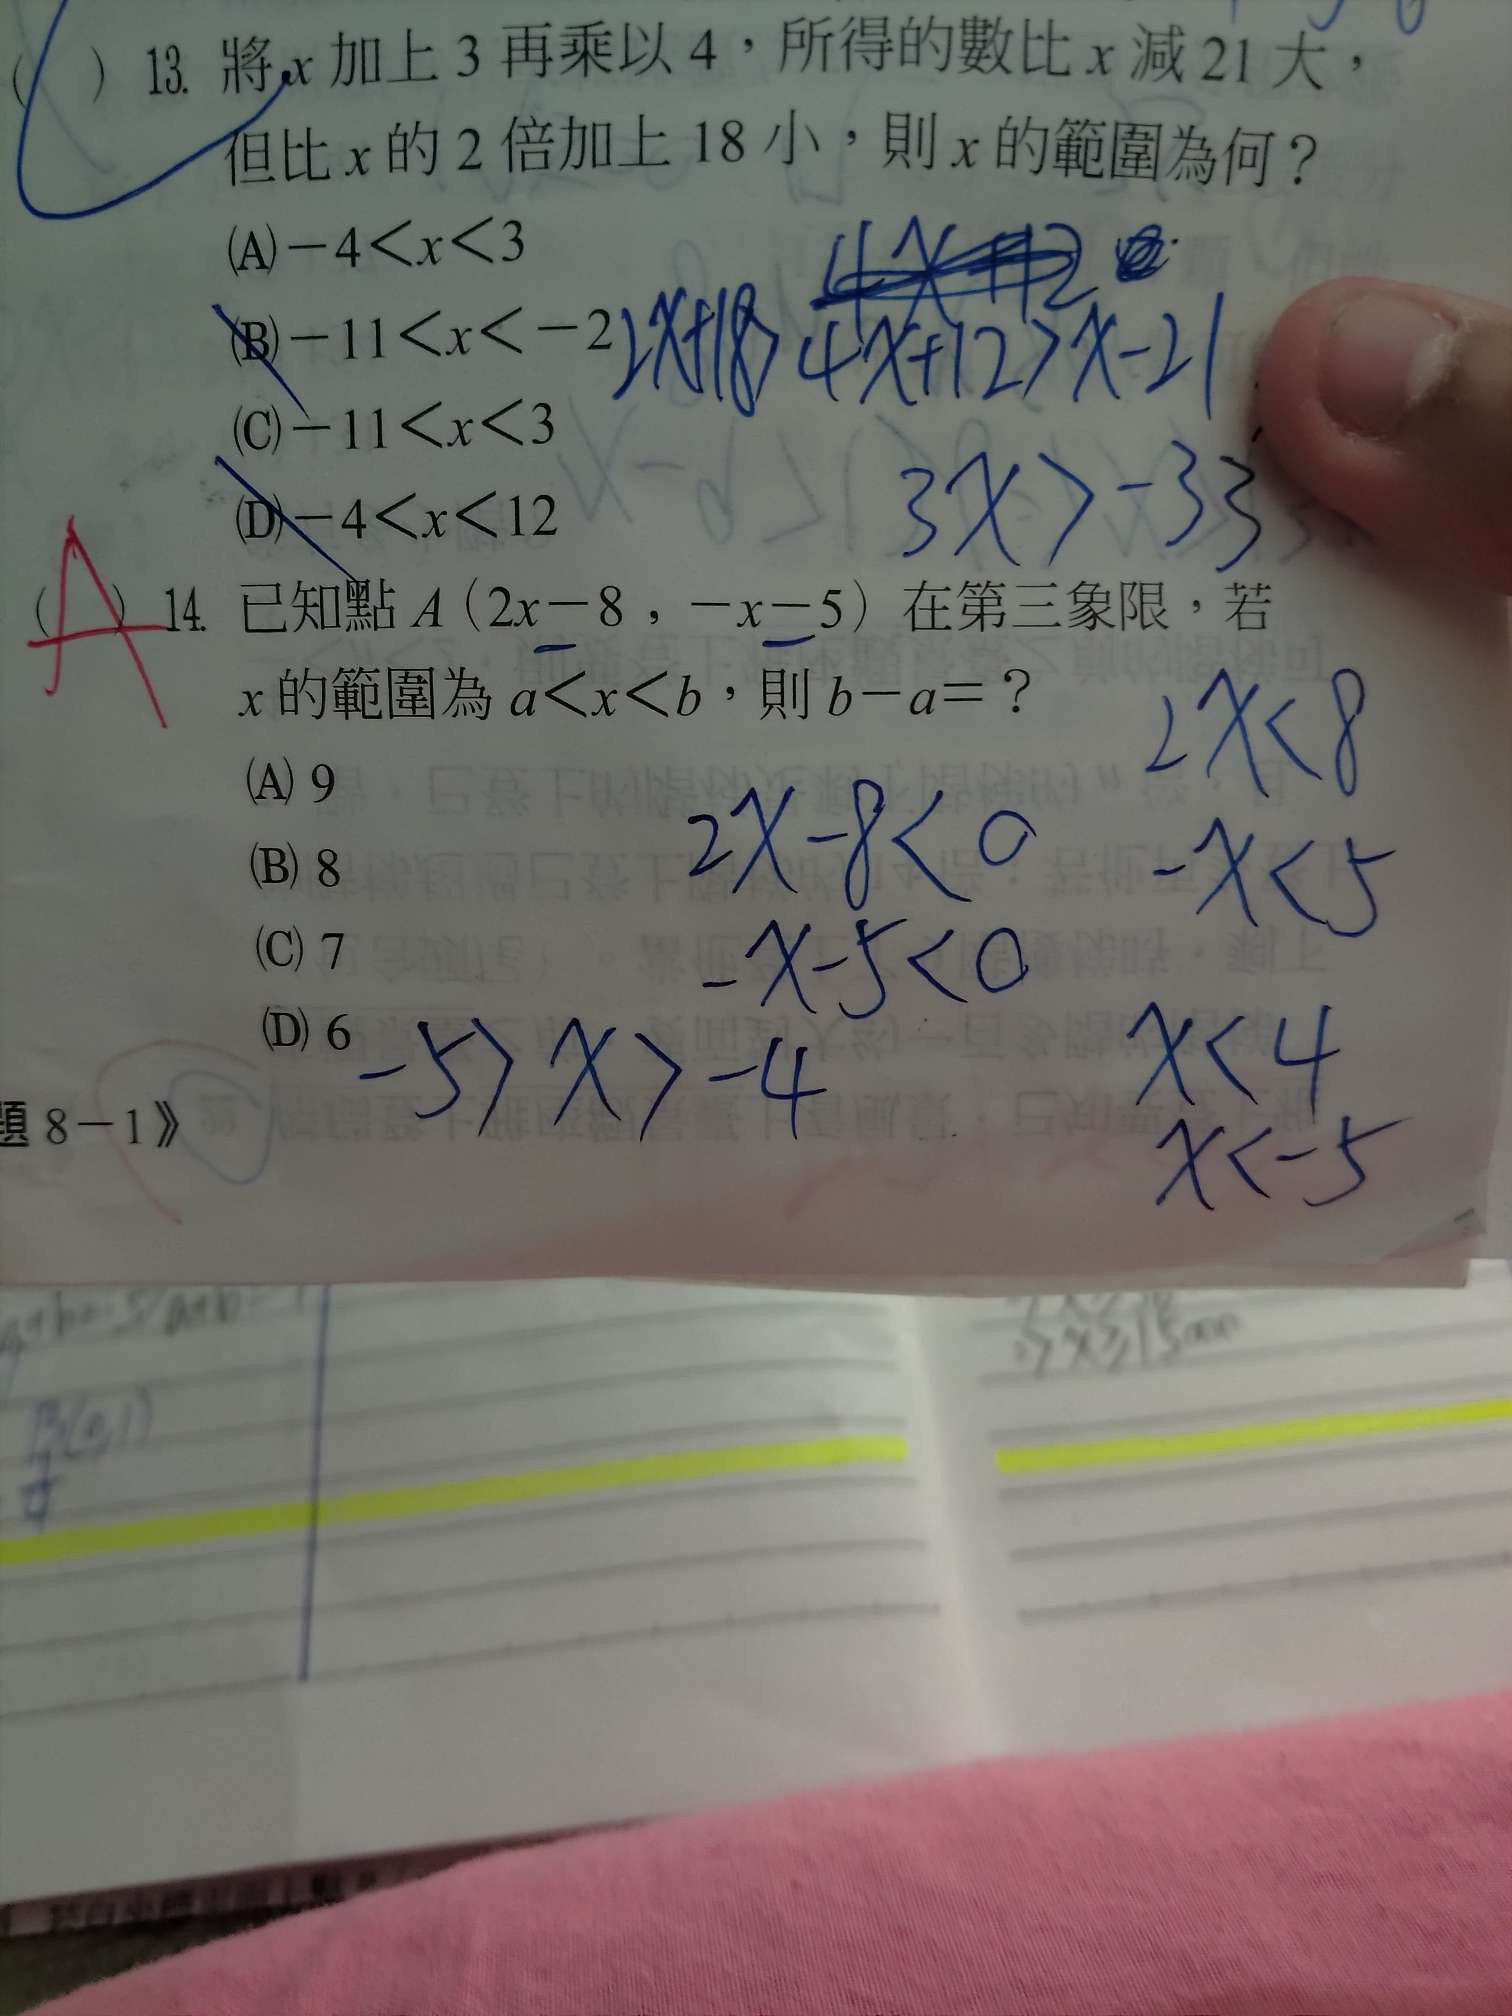 ( ) 13. 將 x 加上 3 再乘以 4,所得的數比 x 減 21 大,
但比 x 的 2 倍加上 18 小,則 x 的範圍為何?
(A) −4<x<3
4x+12
(B) −11<x<−2
2x+18> 4x+12>x-21
(C) −11<x<3
3x>-33
(D) −4<x<12
(A) 14. 已知點 A(2x−8,−x−5)在第三象限,若
x 的範圍為 a<x<b,則 b−a=?
2x<8
(A) 9
2x-8<0
-x<5
(B) 8
(C) 7
-x-5<0
(D) 6
-5>x>-4
x<4
題 8-1》
x<-5
B(0,1)